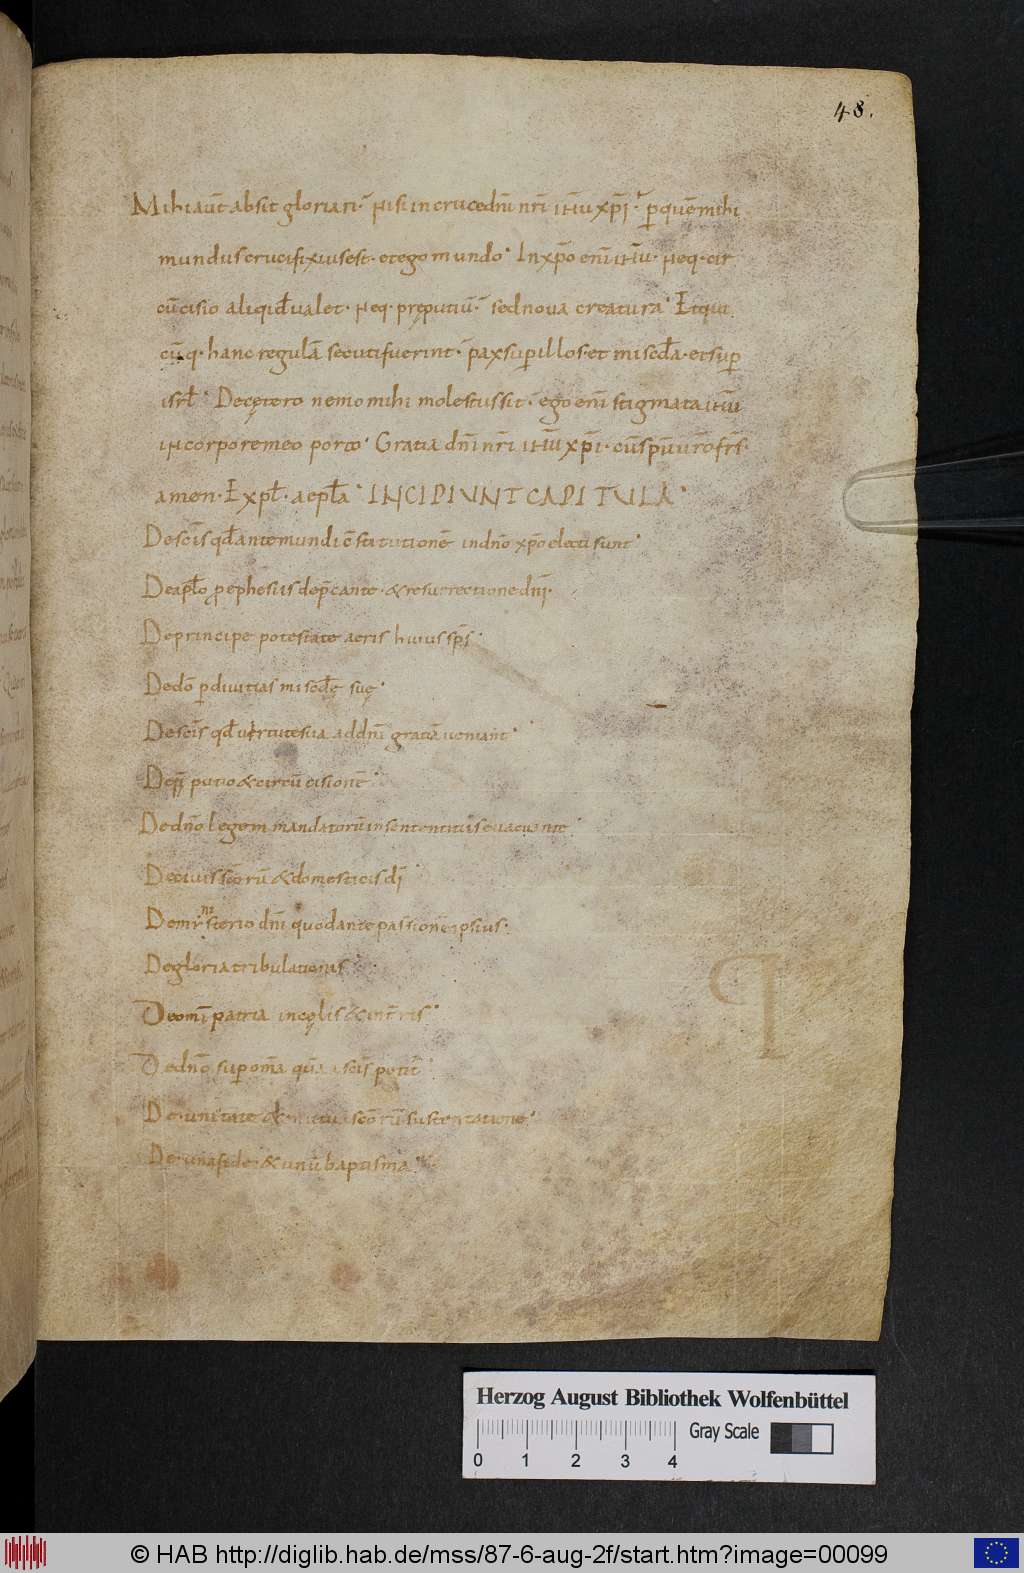 48.
Mihi aut̄ absit gloriari· nisi in cruce dn̄i nr̄i ihū xp̄i· p̱ quē mihi
mundus crucifixus est· et ego mundo· In xp̄o eni̅ ihū· neq· cir
cū cisio aliqid̄ ualet· neq· pręputiū· sed noua creatura· Et qui
cū q· hanc regulā secuti fuerint· pax sup̱ illos· et misc̄da· et sup̱
isrl̄· De cętero nemo mihi molestus sit· ego eni̅ stigmata ihū
in corpore meo porto· Gratia dn̄i nr̄i ihū xp̄i· cū sp̄u ur̄o fr̄s·
amen· Expl̄· aepl̄a· INCIPIUNT CAPITULA·
De sc̄is qd̄ ante mundi c̄stitutionē in dn̄o xp̄o electi sunt·
De apl̄o pro ephesiis dep̄cante· & resurrectione dn̄i·
De principe potestate aeris huius sp̄s·
De dō p̱ diuitias misc̄dę suę·
De sc̄is qd̄ uirtute sua ad dn̄i gratiā ueniant·
De p̄putio & circū cisionē·
De dn̄o legem mandatorū in sententiis euacuante·
De ciuis sc̄orū & domesticis dī·
De mysterio dn̄i quod ante passionē ipsius·
De gloria tribulationis
De omī patria in cęlis & in tr̄is·
De dn̄o sup̱ omā sc̄is petit̄·
De unitate & sc̄orū sustentatione·
De una fide· & unū baptisma·
Herzog August Bibliothek Wolfenbüttel
Gray Scale
0 1 2 3 4
© HAB http://diglib.hab.de/mss/87-6-aug-2f/start.htm?image=00099